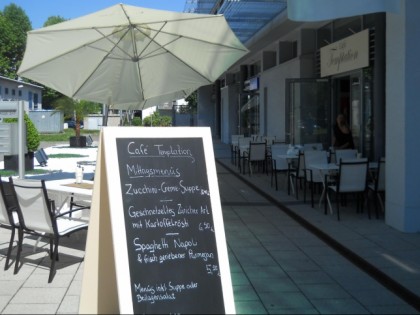 Temptation
Café Temptation
Mittagsmenüs
Zucchini-Creme Suppe
Geschnetzeltes Züricher Art
mit Kartoffelrösti 6,90
Spaghetti Napoli
& frisch geriebener Parmesan
5,90
Menüs inkl. Suppe oder
Beilagensalat